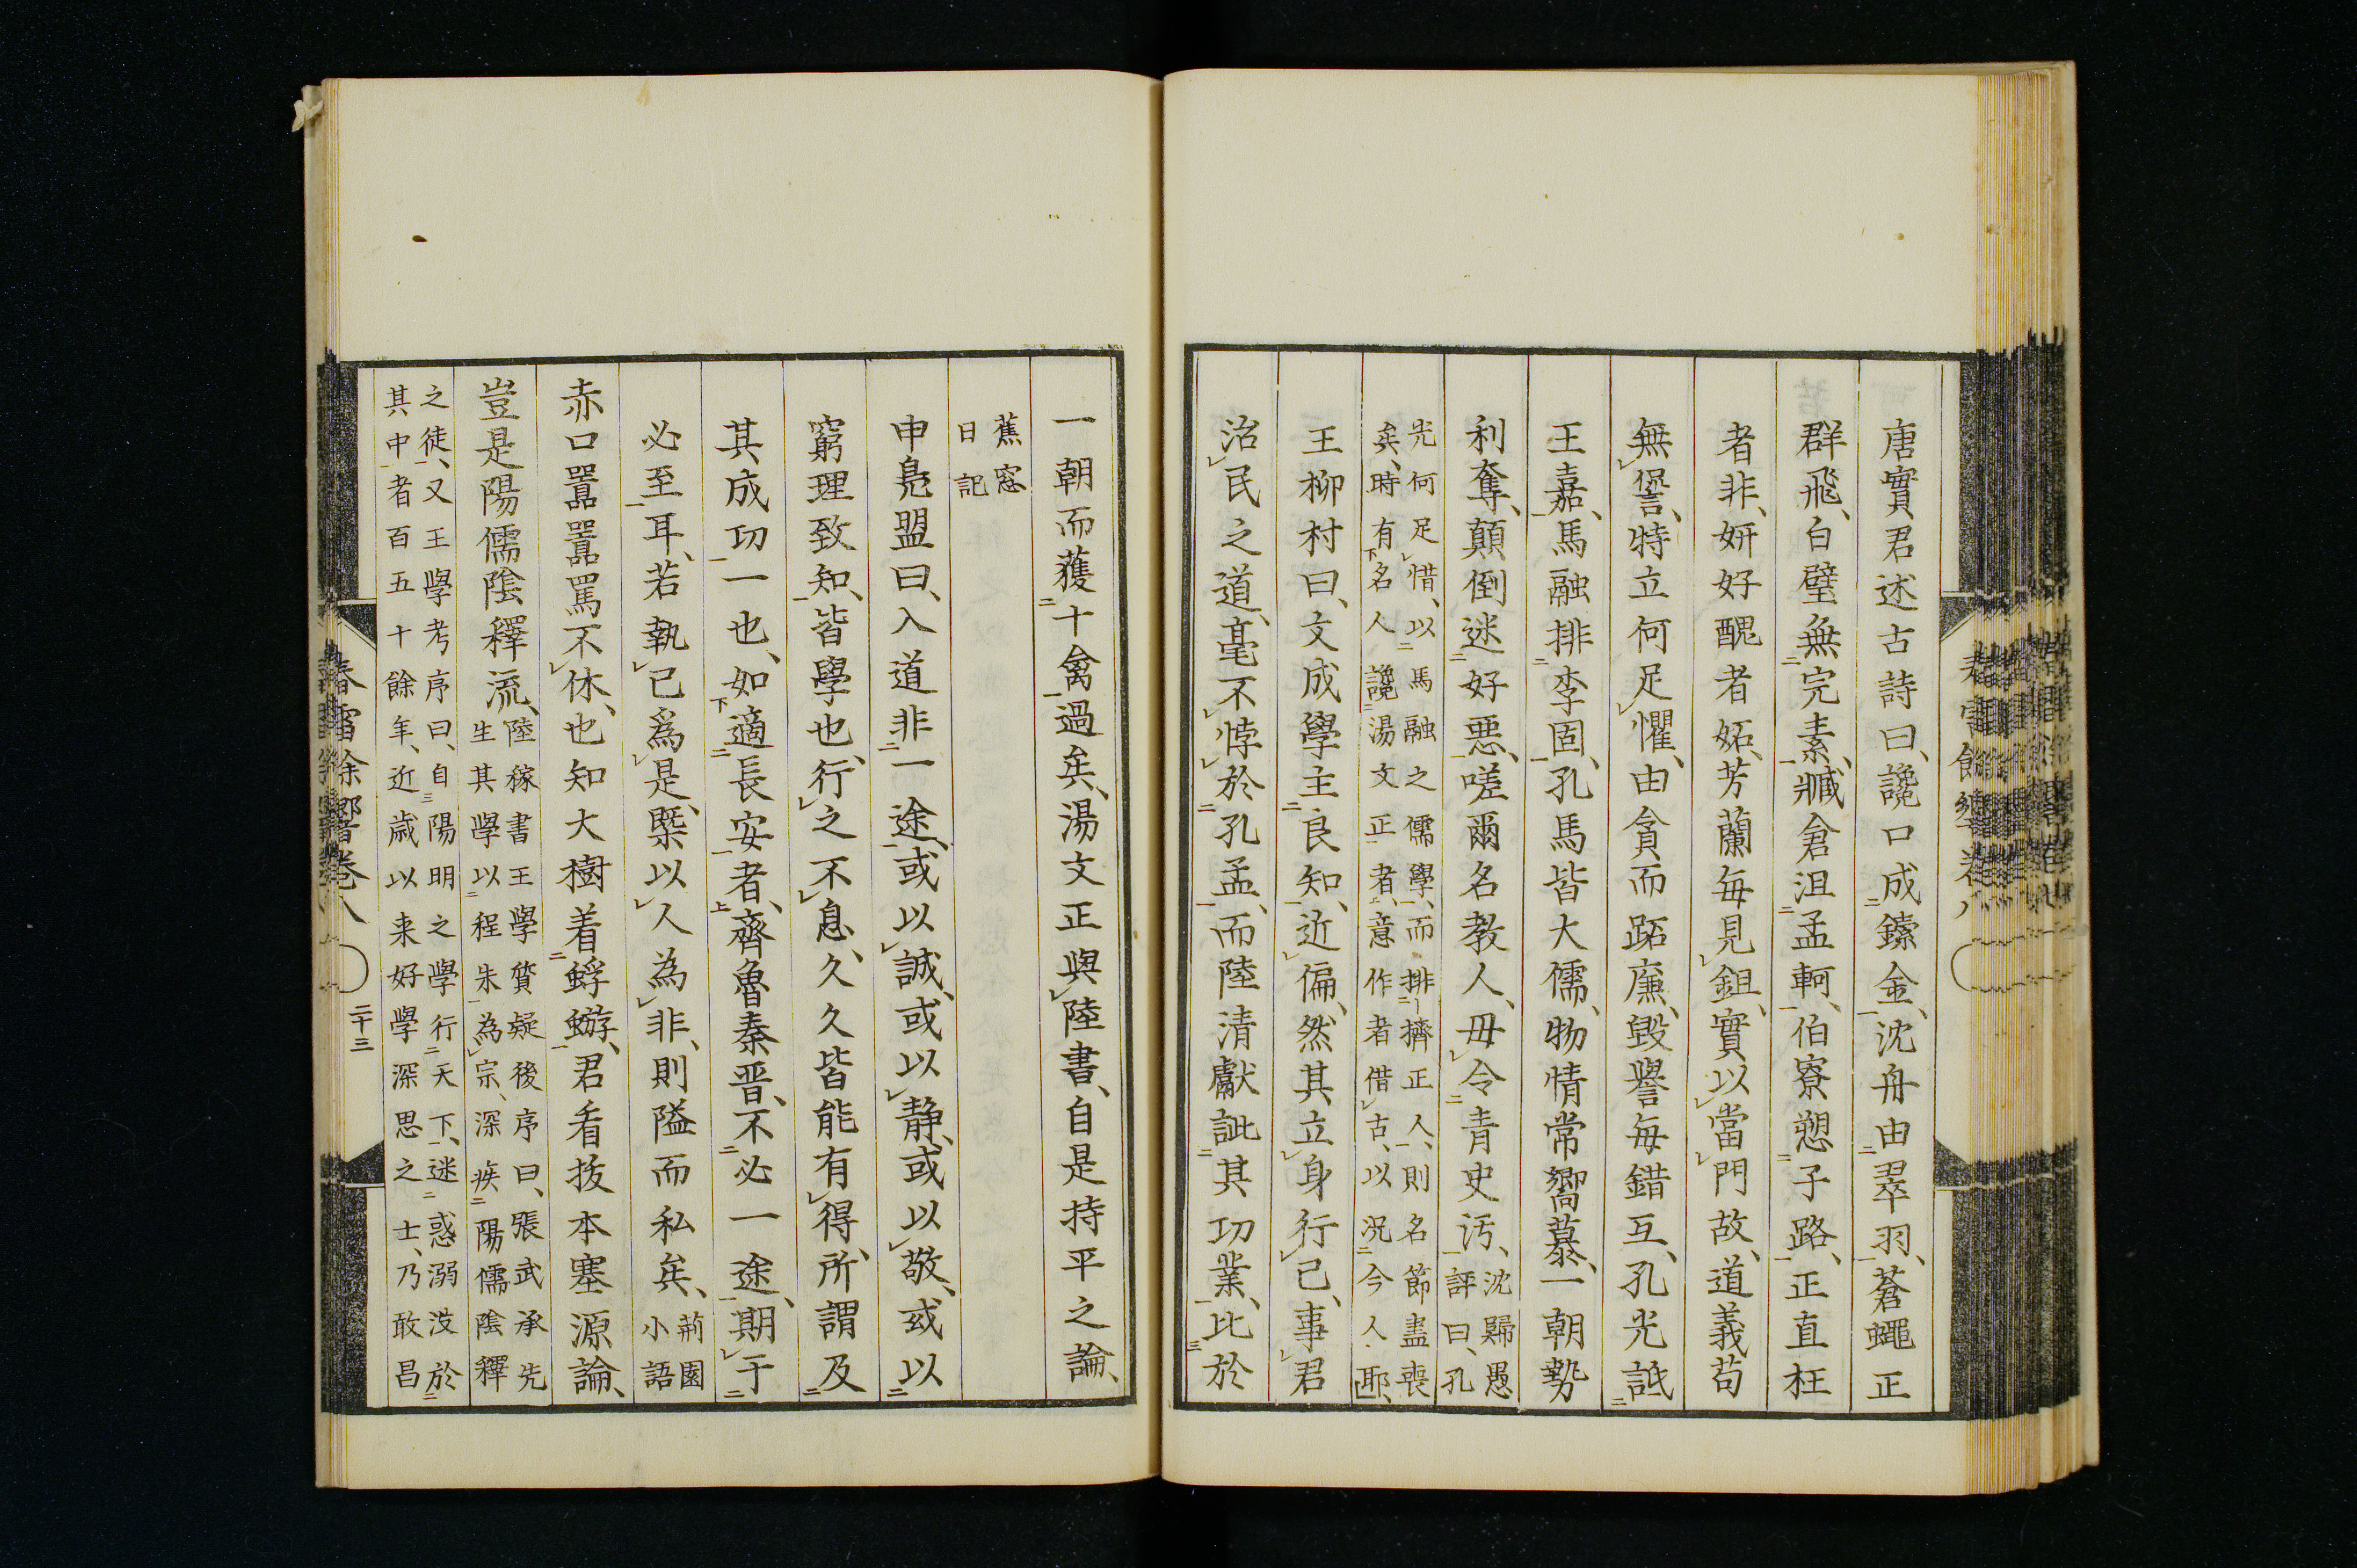 唐實君述古詩曰、讒口成鑠金、沈舟由翠羽、蒼蠅正
群飛、白璧無完素、臧倉沮孟軻、伯寮愬子路、正直枉
者非、妍好醜者妬、芳蘭每見鉏、實以當門故、道義苟
無諐、特立何足懼、由貪而跖廉、毀譽每錯互、孔光詆
王嘉、馬融排李固、孔馬皆大儒、物情常嚮慕、一朝勢
利奪、顛倒迷好惡、嗟爾名教人、毋令青史汚、
沈歸愚
評曰、孔
光何足惜、以馬融之儒學、而排擠正人、則名節盡喪
矣、時有名人讒湯文正者、意作者借古、以况今人耶、
王柳村曰、文成學主良知、近偏、然其立身行己、事君
治民之道、毫不悖於孔孟、而陸清獻訿其功業、比於
一朝而獲十禽過矣、湯文正與陸書、自是持平之論、
蕉窓
日記
申鳧盟曰、入道非一途、或以誠、或以静、或以敬、或以
窮理致知、皆學也、行之不息、久久皆能有得、所謂及
其成功一也、如適長安者、齊魯秦晋、不必一途、期于
必至耳、若執己爲是、槩以人為非、則隘而私矣、
荊園
小語
赤口囂囂罵不休、也知大樹着蜉蝣、君看拔本塞源論、
豈是陽儒陰釋流、
陸稼書王學質疑後序曰、張武承先
生其學以程朱為宗、深疾陽儒陰釋
之徒、又王學考序曰、自陽明之學行天下、迷惑溺沒於
其中者百五十餘年、近歳以来好學深思之士、乃敢昌
春雪餘響卷八
二十三